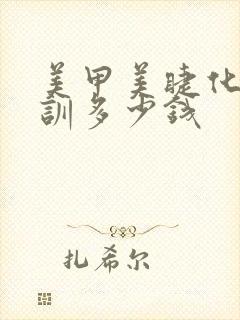 美甲美睫化
訓多少钱
扎希尔